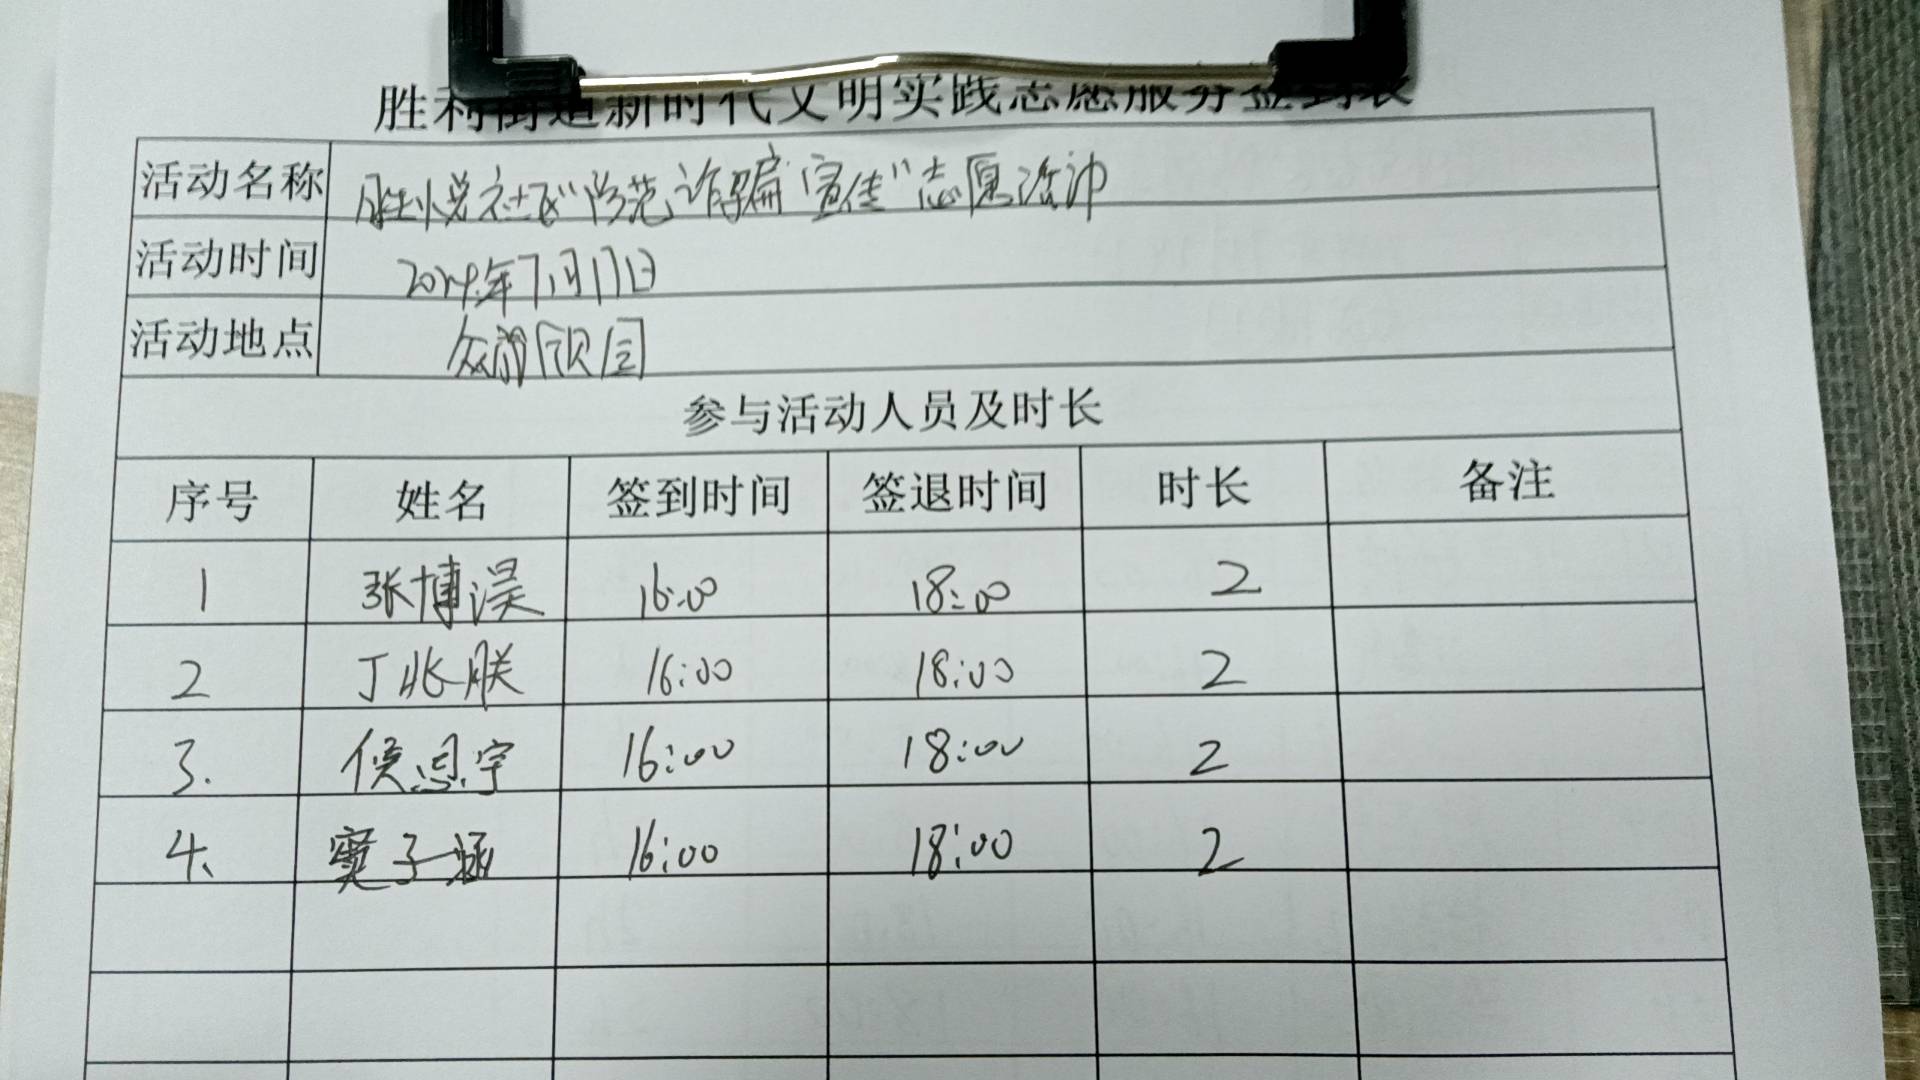 胜利街道新时代文明实践志愿服务签到表
活动名称 胜悦社区“防范诈骗宣传”志愿活动
活动时间 2024年7月17日
活动地点 众翔欣园
参与活动人员及时长
序号 姓名 签到时间 签退时间 时长 备注
1 张博淏 16:00 18:00 2
2 丁兆朕 16:00 18:00 2
3. 侯恩宇 16:00 18:00 2
4、 窦子涵 16:00 18:00 2